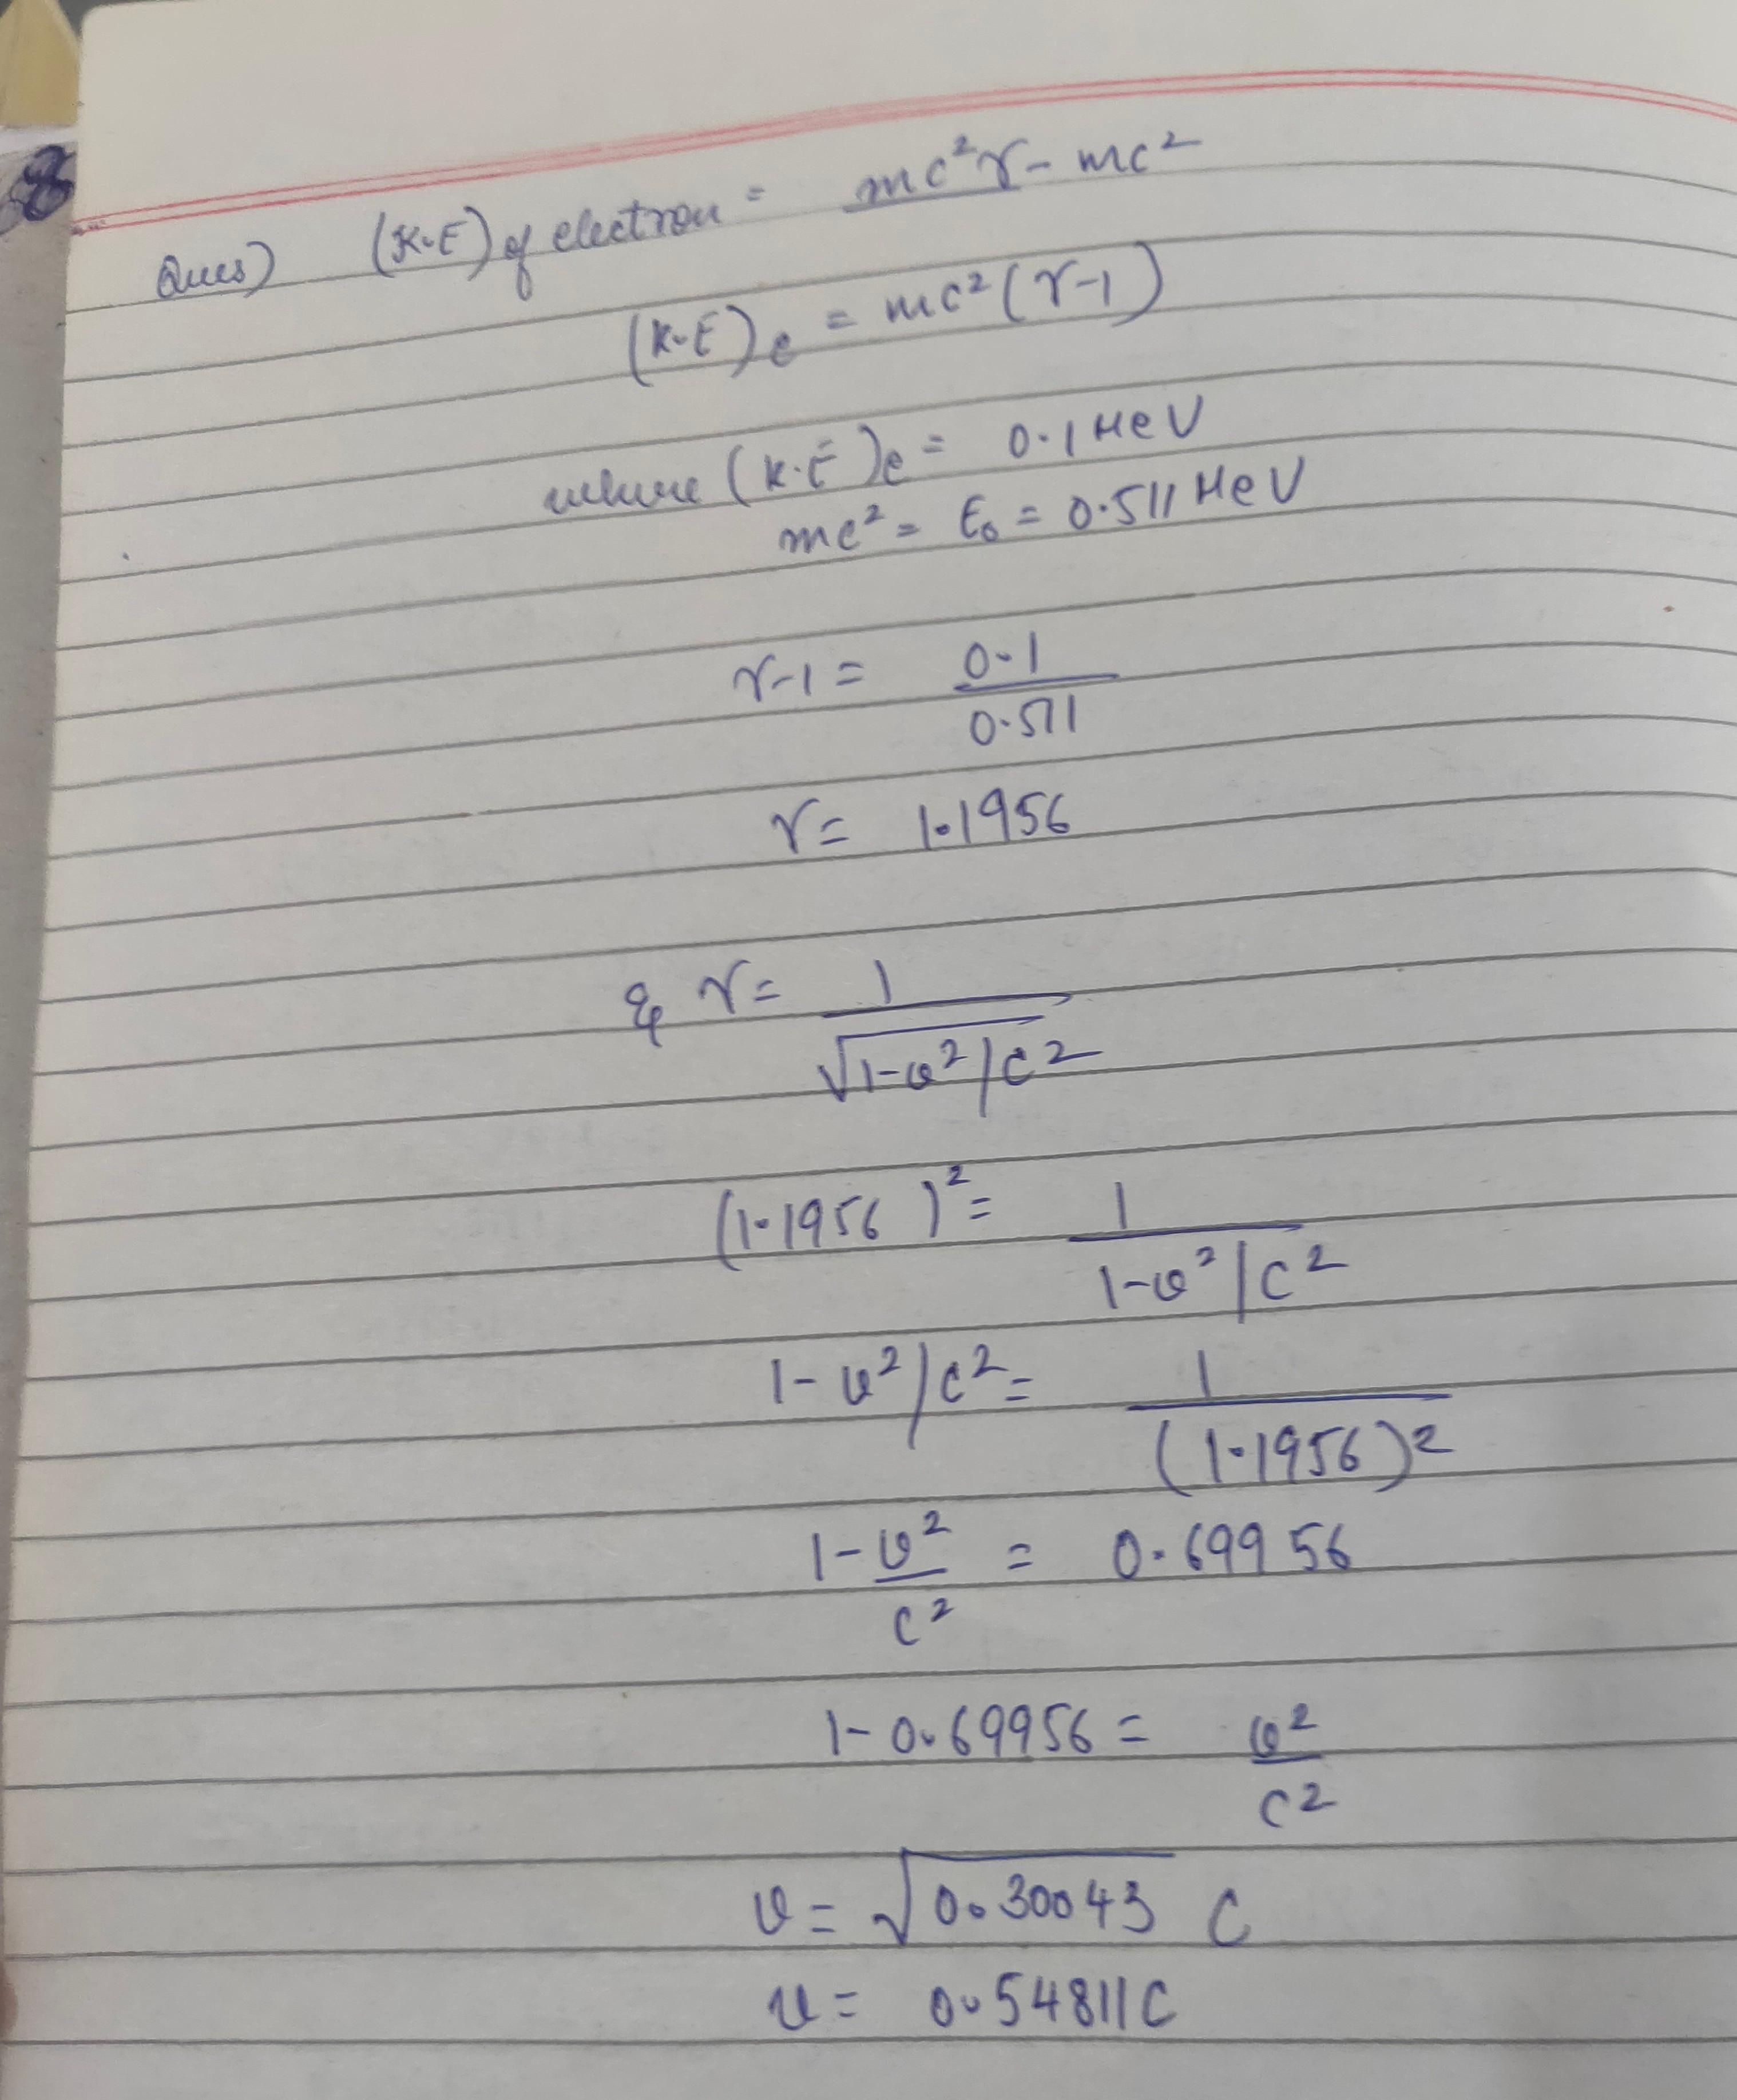 Ques) (K.E) of electron = mc²γ - mc²
(K.E)e = mc²(γ-1)
where (K.E)e = 0.1 MeV
mc² = E₀ = 0.511 MeV
γ-1 = 0.1 / 0.511
γ = 1.1956
& γ = 1 / √1-v²/c²
(1.1956)² = 1 / 1-v²/c²
1-v²/c² = 1 / (1.1956)²
1-v²/c² = 0.69956
1-0.69956 = v²/c²
v = √0.30043 C
v = 0.54811C